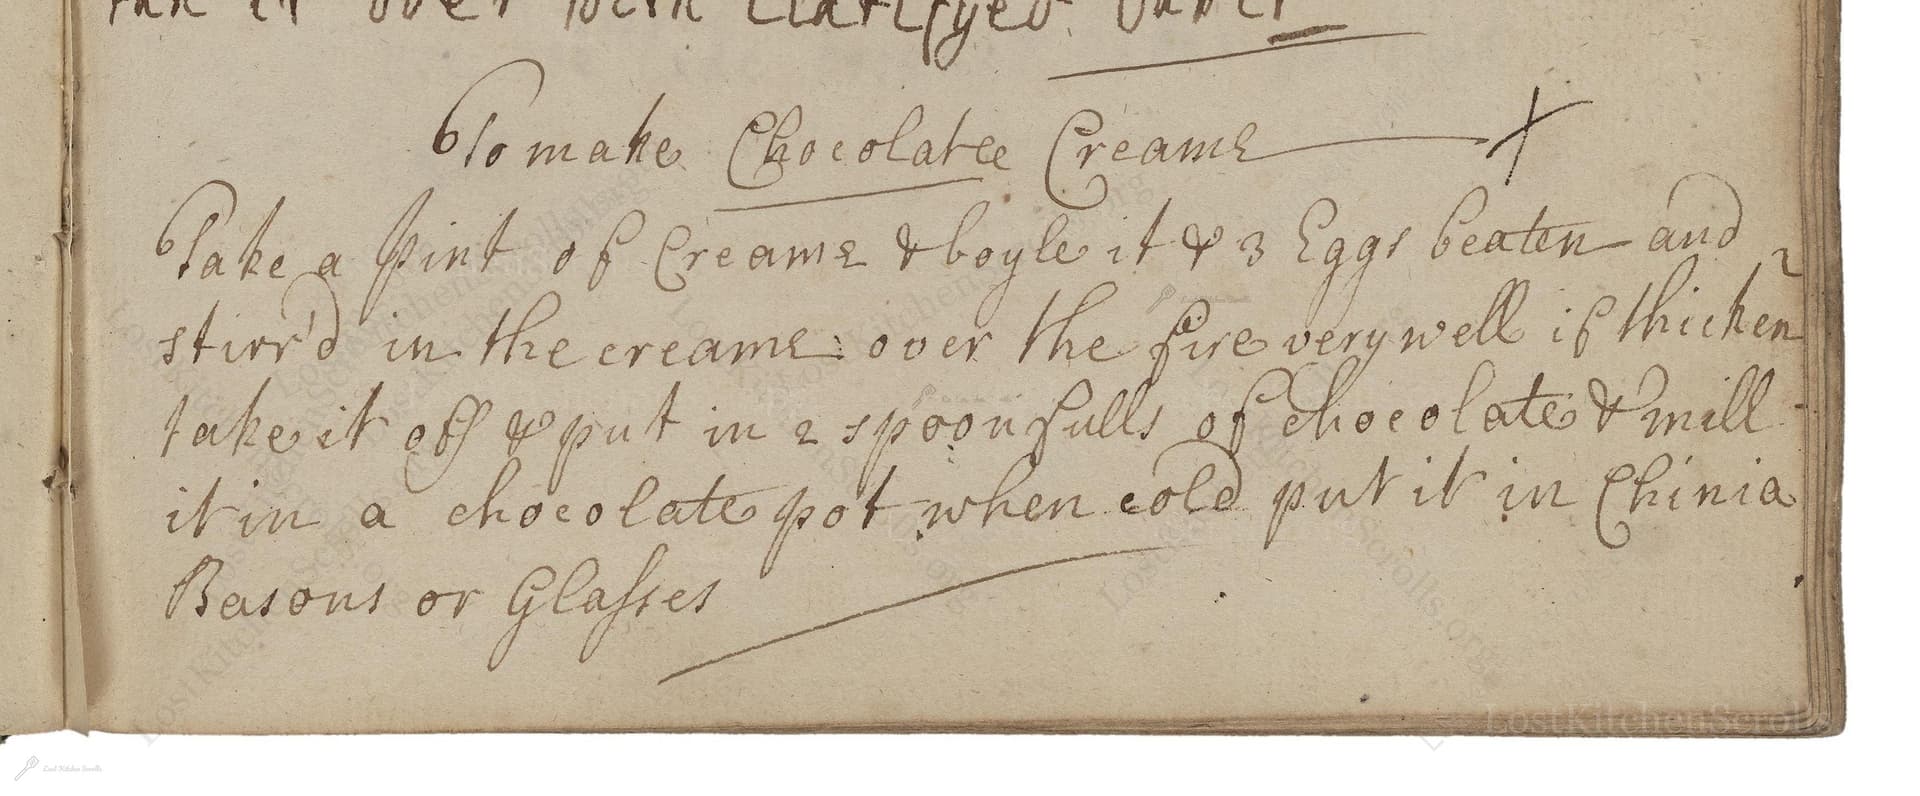 it over with Clarifyed
To make Chocolatee Creame
Take a pint of Creame & boyle it & 3 Eggs beaten and
stirr'd in the creame over the fire very well if thicken
take it off & put in 2 spoonfulls of chocolate & mill
it in a chocolate pot when cold put it in Chinia
Basons or Glasses
LostKitchenScrolls
Lost Kitchen Scrolls